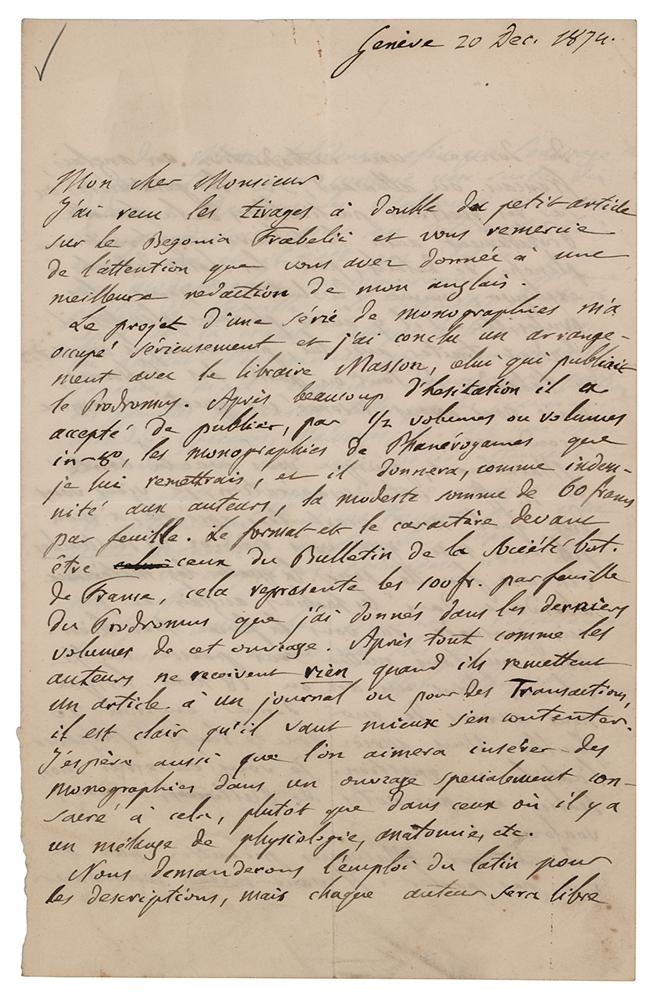 Genève 20 Dec. 1874.
Mon cher Monsieur
J'ai recu les tirages à double du petit article
sur le Begonia Frœbelii et vous remercie
de l'attention que vous avez donnée à une
meilleure redaction de mon anglais.
Le projet d'une série de monographies m'a
occupé sérieusement et j'ai conclu un arrange-
ment avec le libraire Masson, celui qui publiait
le Prodromus. Après beaucoup d'hesitation il a
accepté de publier, par 1/2 volumes ou volumes
in-8o, les monographies de Phanérogames que
je lui remettrais, et il donnera, comme indem-
nité aux auteurs, la modeste somme de 60 francs
par feuille. Le format et le caractère devant
être celui ceux du Bulletin de la Société bot.
de France, cela represente les 100 fr. par feuille
du Prodromus que j'ai donnés dans les derniers
volumes de cet ouvrage. Après tout comme les
auteurs ne reçoivent rien quand ils remettent
un article à un journal ou pour des Transactions,
il est clair qu'il vaut mieux s'en contenter.
J'espère aussi que l'on aimera insérer des
monographies dans un ouvrage specialement con-
sacré à cela, plutot que dans ceux où il y a
un mélange de physiologie, anatomie, etc.
Nous demanderons l'emploi du latin pour
les descriptions, mais chaque auteur sera libre